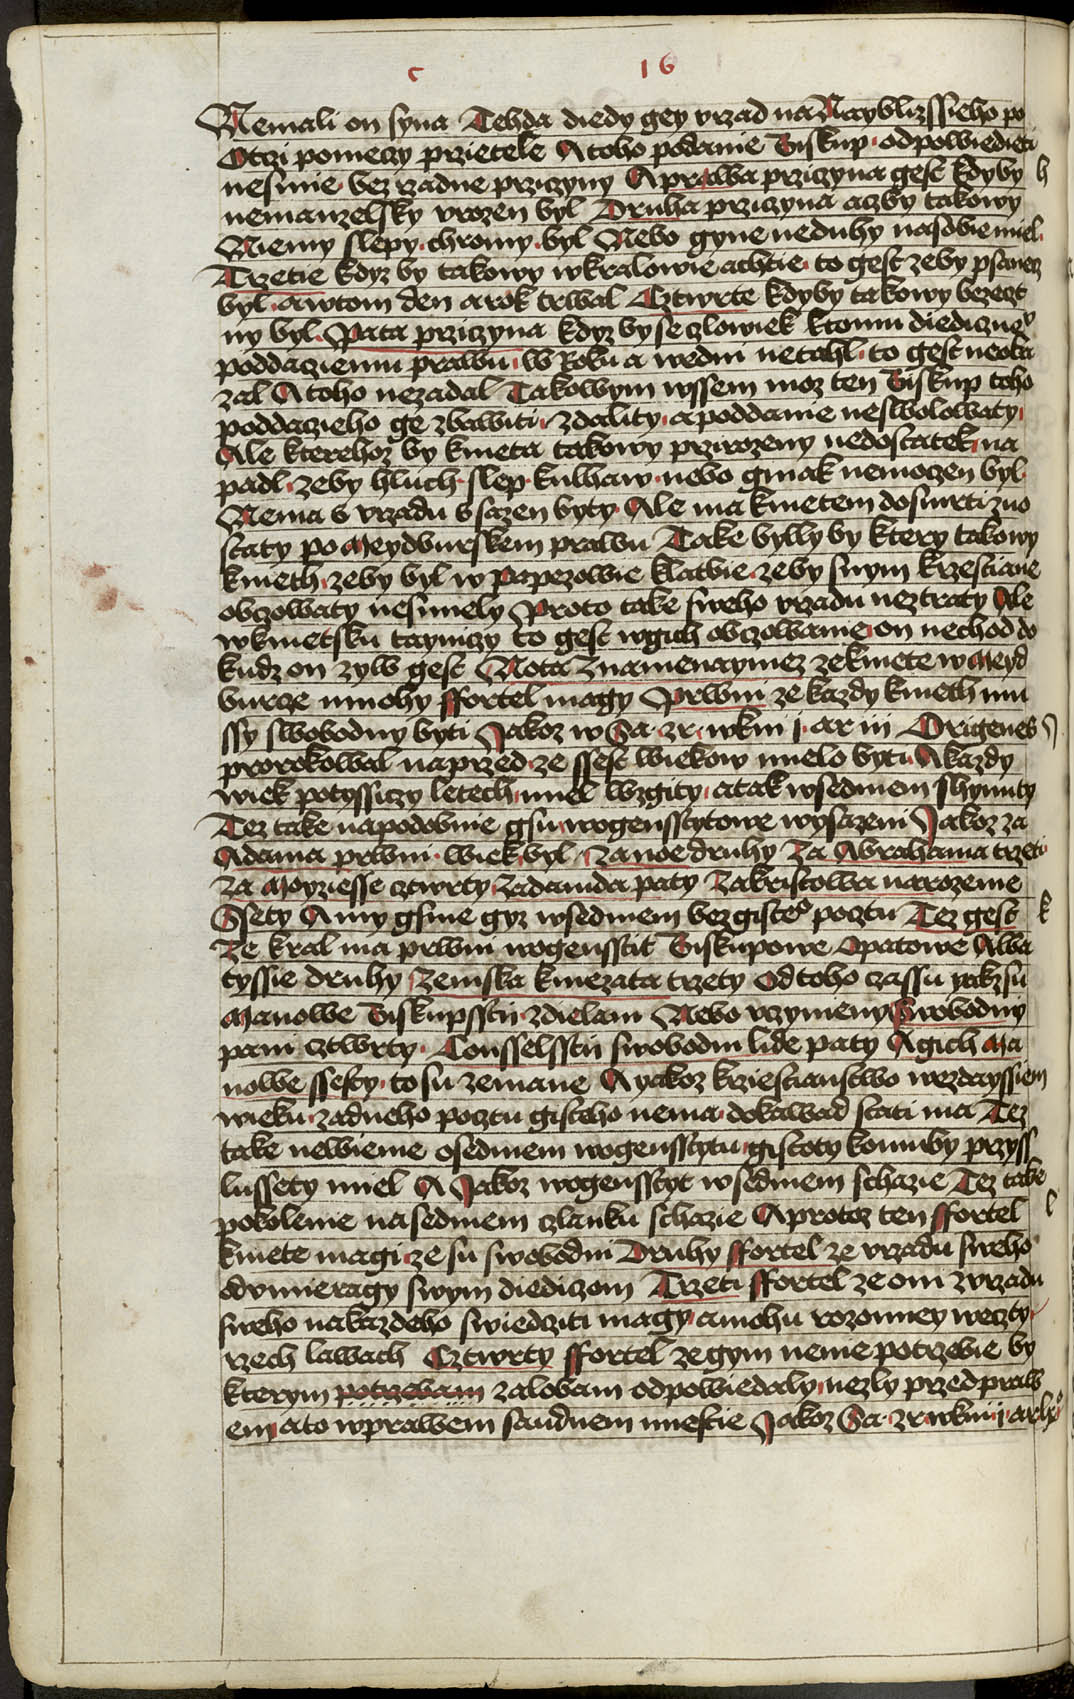 c 16
Nemali on syna Tehda diedy gey vrzad na Nayblizssieho po
Otczi pomeczy przietele A toho podanie Biskup odpowiedieti
nesmie bez rzadne prziczyny A prwa prziczyna gest kdyby h
nemanzelsky vrozen byl Druha prziczyna aczby takowy
Niemy slepy chromy byl Nebo gyne neduhy na sobie miel
Trzetie kdyz by takowy w kralowie achtie to gest zeby psanecz
byl a w tom den a rok trwal Cztwrte kdyby takowy bezect
ny byl Pata prziczyna kdyz by se czlowiek k tomu diedicznev
poddaciemu prawu w Roku a wedni netahl to gest neoka
zal A toho nezadal Takowym wssem moz ten Biskup toho
poddacieho ge zbawiti zdality a poddanie neswolowaty
Ale kterehoz by kmeta takowy przirozeny nedostatek na
padl zeby hluch slep kulhaw nebo ginak nemoczen byl
Nema s vrzadu ssazen byty Ale ma kmetem do smrti zuo
staty po Meydburskem prawu Take bylly by ktery takowy
kmeth zeby byl w papezowie klatbie zeby s nym krzestiane
obczowaty nesmiely Proto take sweho vrzadu neztraty Ale
w kmetsku taymczy to gest w gich obczowanie on nechod do
kudz on zyw gest Nota Znamenaymez ze kmete w Meyd
burcze mnohy ffortel magy Prwni ze kazdy kmeth mu
ssy swobodny byti Jakoz w Sa zr wkni j ar iij Origenes J
prorokowal naprzed ze ssest wiekow mielo byti A kazdy
wiek po tyssiczy letech miel wzgity a tak w sedmem shynuty
Tez take na podobnie gsu wogensstytowe wysazeni Jakoz za
Adama prwni wiek byl za noe druhy Za Abrahama trzeti
Za Moyziesse cztwrty Za dawida paty Za kristowa narozenie
Ssesty A my gsme gyz w sedmem bez gisteho pocztu Tez gest k
Ze kral ma prwni wogensstit Biskupowe Opatowe Aba
tyssie druhy Zemska kniezata trzety Od toho czassu yakz su
Manowe Biskupssti zdielani Nebo vczymeny Swobodny
pani cztwrty Consselssti swobodni lide paty A gich Ma
nowe ssesty to su zemane A yakoz krziestianstwo wezdayssiem
wieku zadneho pocztu gisteho nema dokawad stati ma Tez
take newieme o sedmem wogensstytu gistoty komuby przyss
lussety miel A Jakoz wogensstyt w sedmem schazie Tez take
pokolenie na sedmem czlanku schazie A protoz ten ffortel l
kmete magi ze su swobodni Druhy ffortel ze vrzadu sweho
odvmieragy swym diediczom Trzeti ffortel ze oni z vrzadu
sweho na kazdeho swiedcziti magy a mohu rozonney we czty
rzech lawach Cztwrty ffortel ze gym nenie potrzebie by
kterym potrzebam zalobam odpowiedaly nezly przed praw
em a to w prawem saudnem miestie Jakoz Sa zr wkni j ar lxo